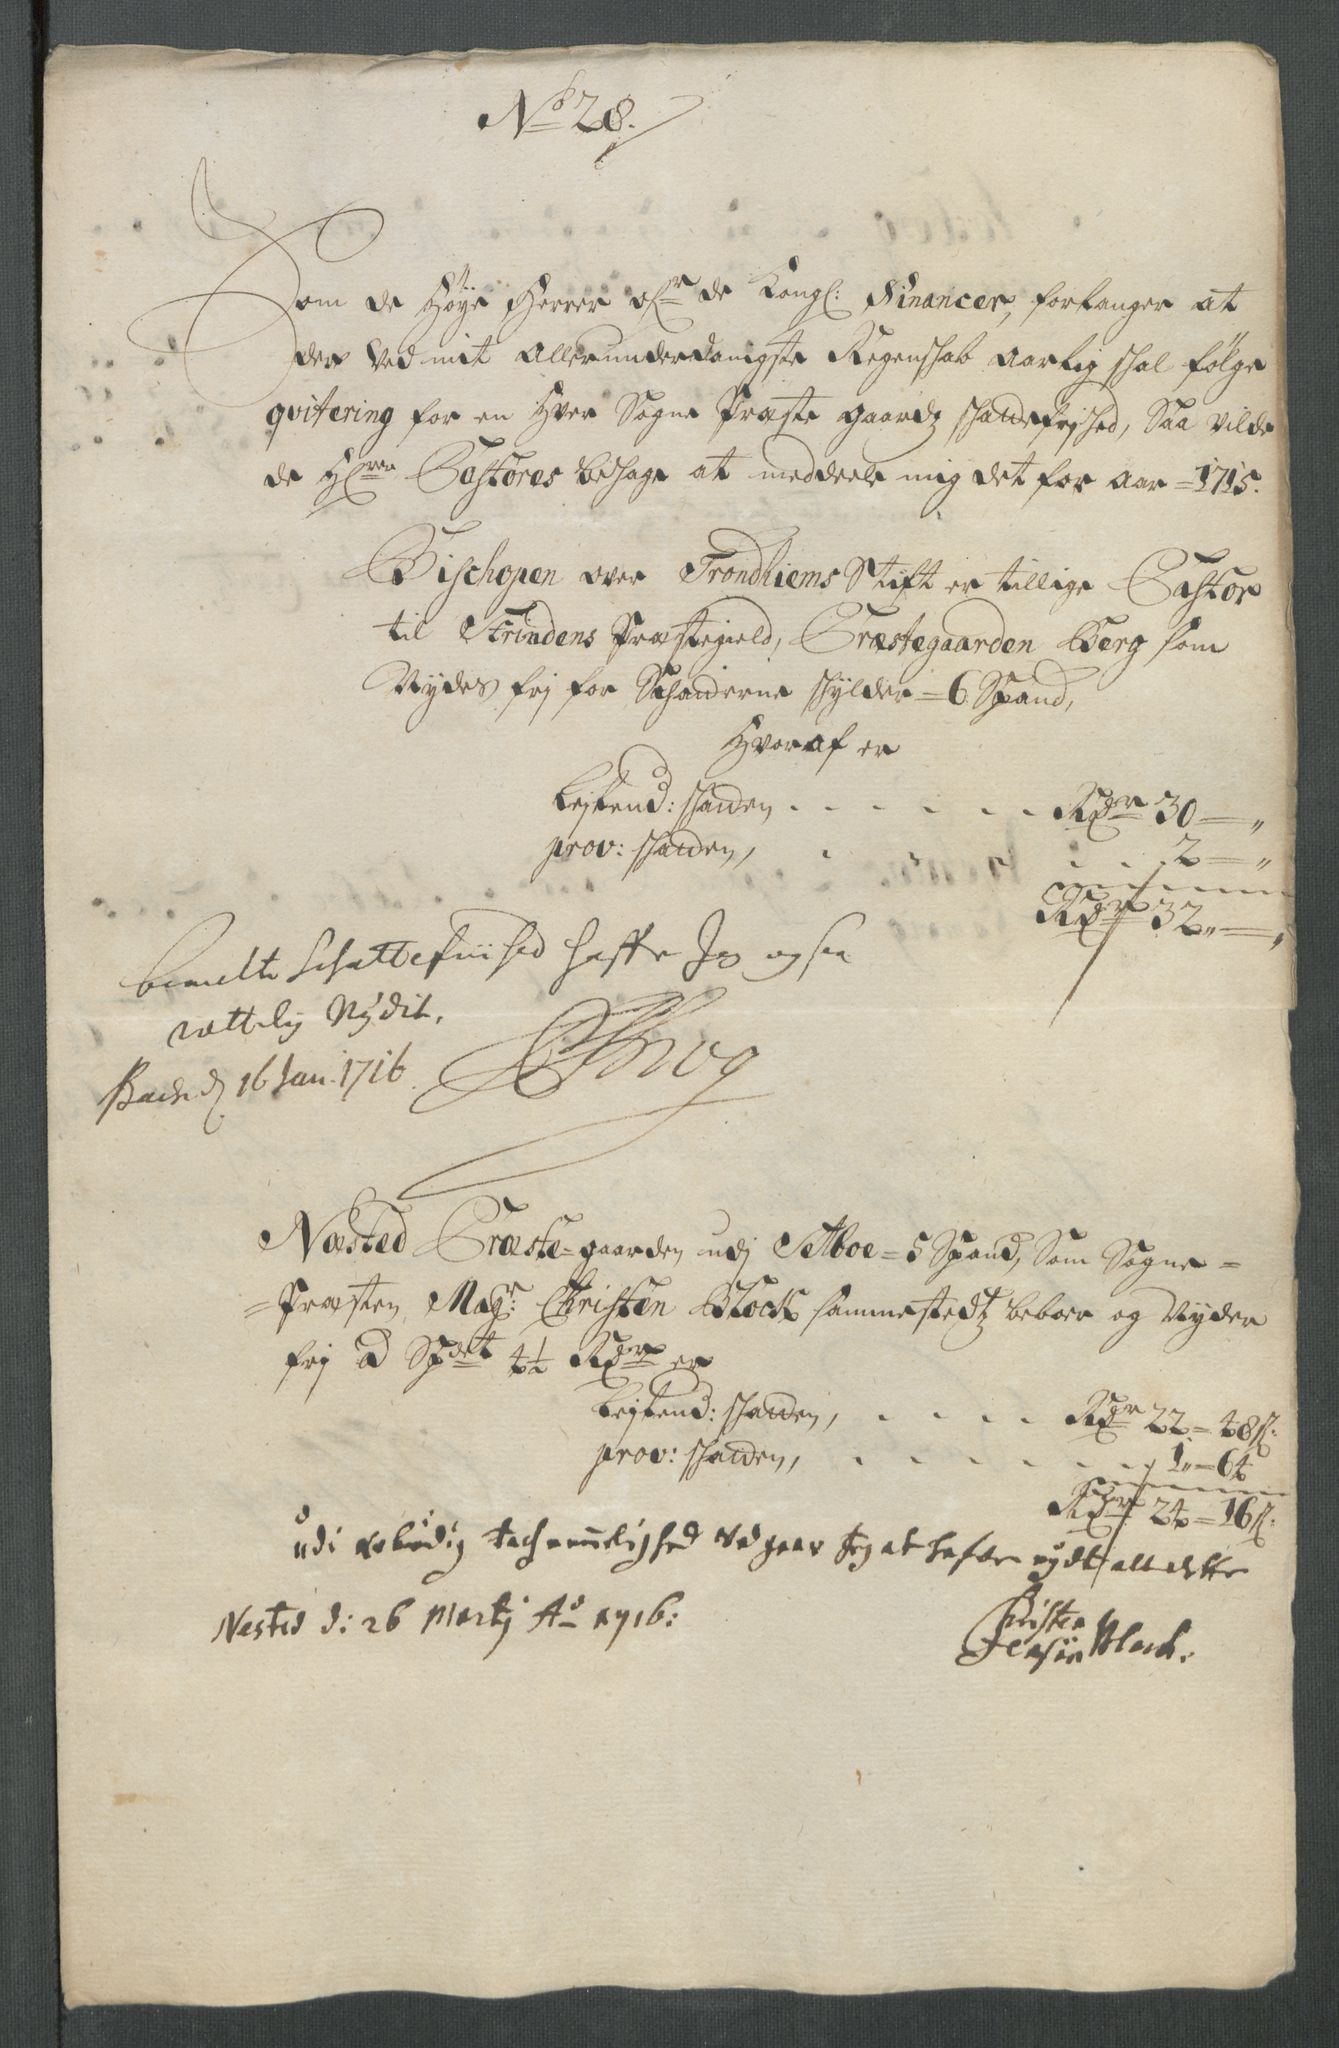 No 28.
Som de Høye Herrer ofr de Kongl: Financer, forlanger at
der Ved mit Allerunderdanigste Regenskab Aarlig skal følge
qvitering for en hver Sogne Præste gaardz skattefrjhed, Saa vilde
de Hrer Pastores behage at meddeele mig det for Aar = 1715.
Bischopen over Trondhiems Stift er tillige Pastor
til Strindens Præstegield, Præstegaarden Berg som
Nydes frj for Schatterne skylder = 6 Spand,
Hvoraf er
Lejlend: skatten . . . . . . Rdr 30 — „
prov: skatten, . . . . . . 2 — „
Rdr 32 „ — „
bemelte Schattefriihed haffr Jeg ogsaa
rættelig Nÿdit.
Bache d 16 Jan. 1716. PKrog
Næsted Præste=gaarden udj Selboe = 5 Spand, Som Sogne =
= Præsten, Magr: Christen Block sammestedtz beboer og Nyder
frj ad Spdet 4½ Rdr er
Lejlend: skatten, . . . . Rdr 22 = 48 s:
prov: skatten, . . . . . . 1 „ = 64
Rdr 24 = 16 s:
udi ærbødig tachnemmelighed ved gaar Jeg at hafve nydt alt dette
Nested d: 26 Martij Ao 1716:
Christen
Jensøn Block.